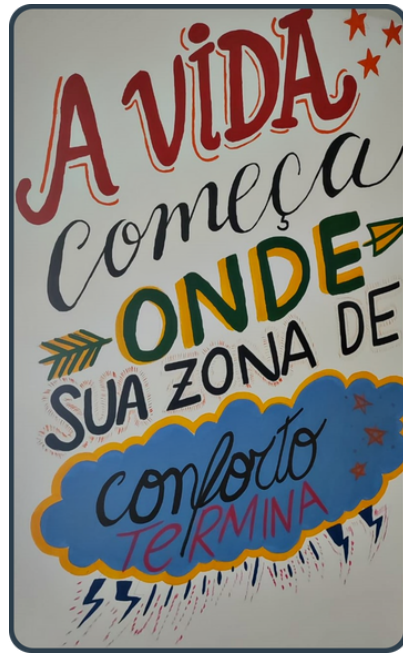 A ViDA
começa
ONDE
SUA ZONA DE
conforto
TeRMINA